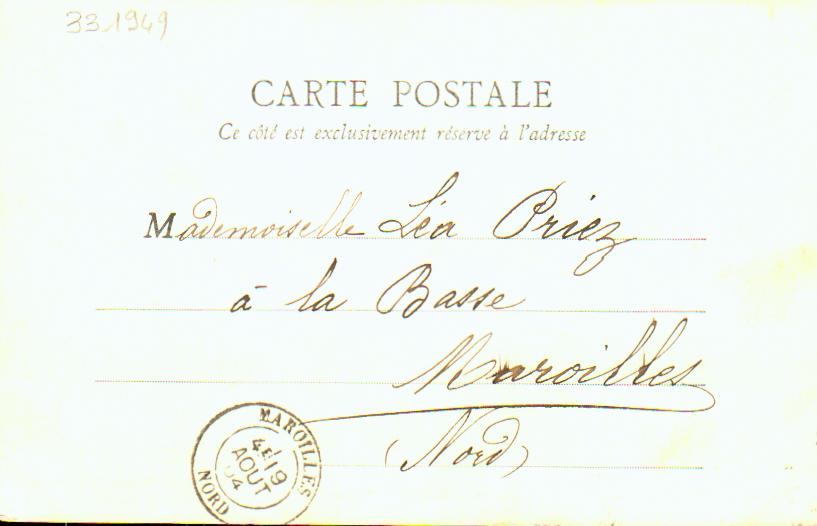 33.1949
CARTE POSTALE
Ce côté est exclusivement réservé à l'adresse
Mademoiselle Léa Priez
à la Basse
Maroilles
(Nord)
MAROILLES
19
AOUT
04
NORD